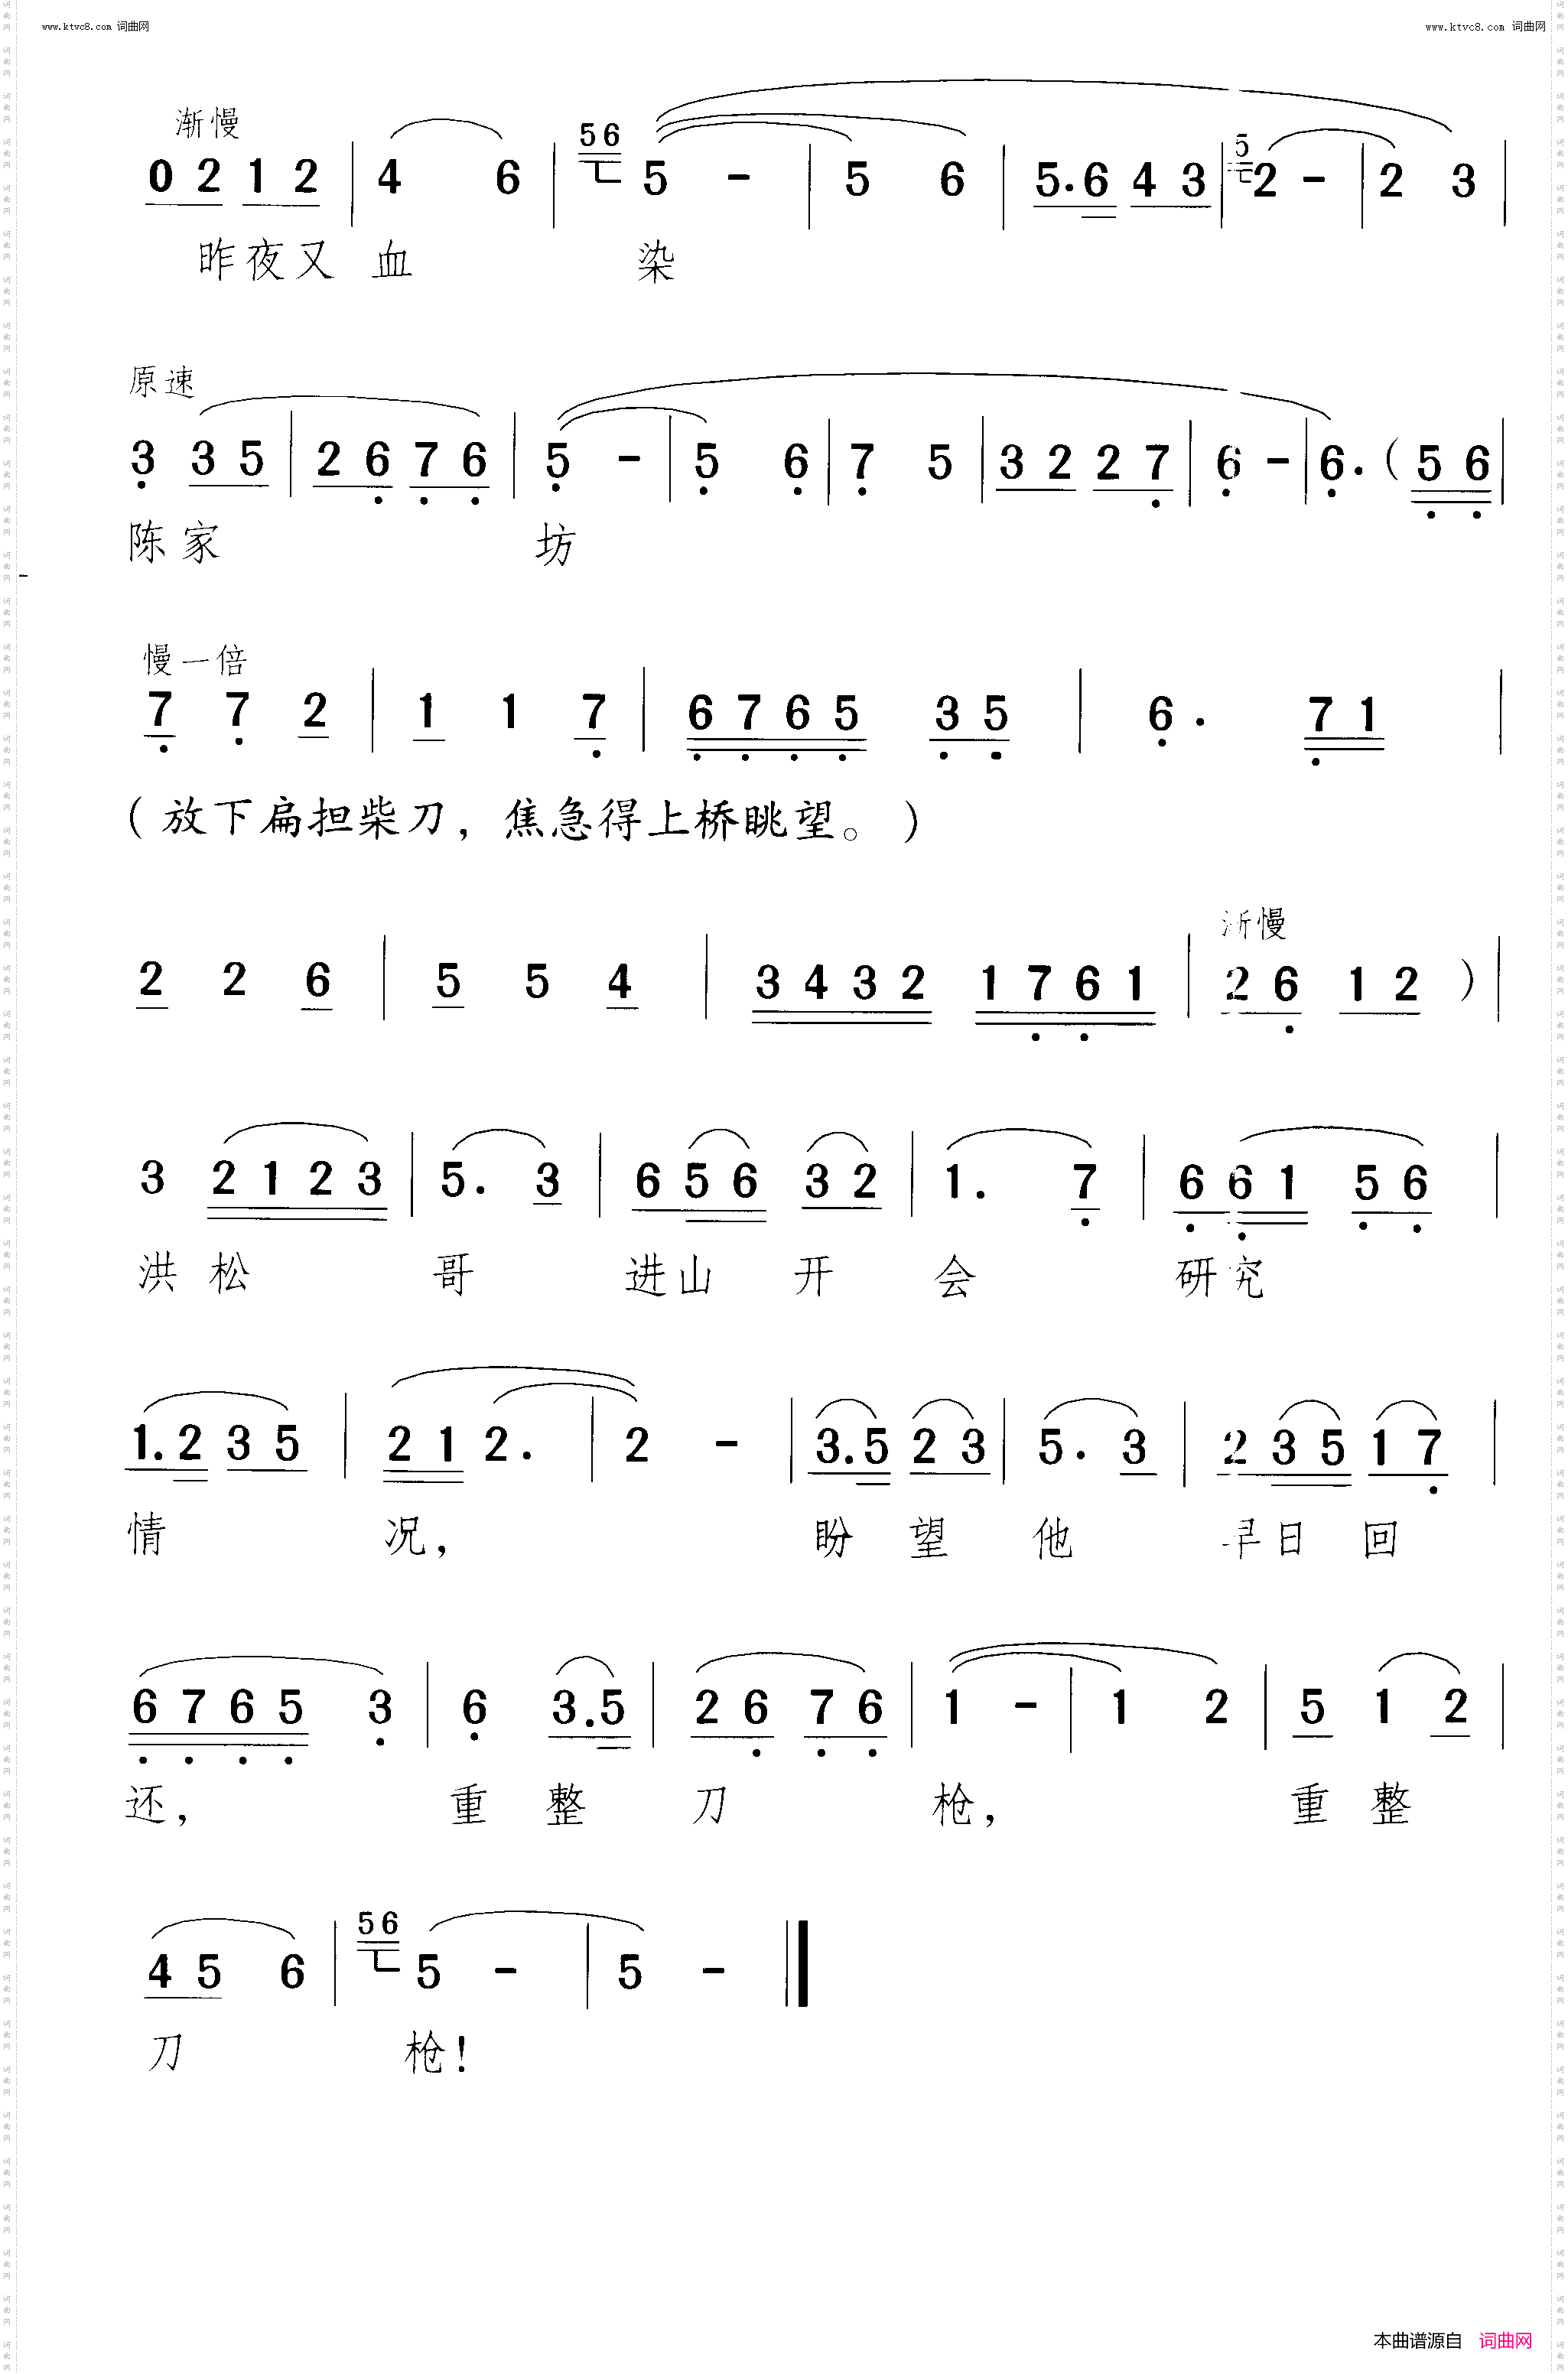 www.ktvc8.com 词曲网 www.ktvc8.com 词曲网
渐慢
56 5
0 2 1 2 | 4 6 | 5 - | 5 6 | 5. 6 4 3 | 2 - | 2 3 |
昨夜又血 染
原速
3 3 5 | 2 6 7 6 | 5 - | 5 6 | 7 5 | 3 2 2 7 | 6 - | 6. ( 5 6 |
陈家 坊
慢一倍
7 7 2 | 1 1 7 | 6 7 6 5 3 5 | 6. 7 1 |
(放下扁担柴刀，焦急得上桥眺望。)
渐慢
2 2 6 | 5 5 4 | 3 4 3 2 1 7 6 1 | 2 6 1 2 ) |
3 2 1 2 3 | 5. 3 | 6 5 6 3 2 | 1. 7 | 6 6 1 5 6 |
洪松 哥 进山 开 会 研究
1. 2 3 5 | 2 1 2. | 2 - | 3. 5 2 3 | 5. 3 | 2 3 5 1 7 |
情 况， 盼 望 他 早日 回
6 7 6 5 3 | 6 3. 5 | 2 6 7 6 | 1 - | 1 2 | 5 1 2 |
还， 重 整 刀 枪， 重 整
56
4 5 6 | 5 - | 5 - ‖
刀 枪！
本曲谱源自 词曲网